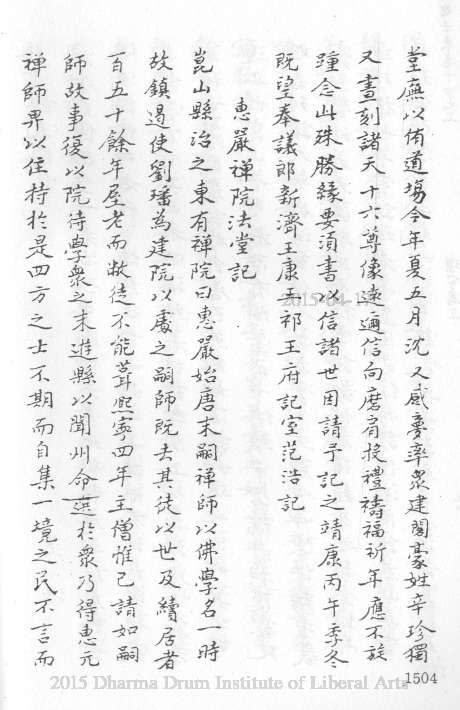 堂廡以侑道場今年夏五月沈又感夢率衆建閣豪姓辛珍獨
又畫刻諸天十六尊像遠邇信向磨肩授禮禱福祈年應不旋
踵念此殊勝緣要須書以信諸世因請予記之靖康丙午季冬
既望奉議郎新濟王康王祁王府記室范浩記
惠嚴禪院法堂記
崑山縣治之東有禪院曰惠嚴始唐末嗣禪師以佛學名一時
故鎮遏使劉璠為建院以處之嗣師既去其徒以世及續居者
百五十餘年屋老而敝徒不能葺熙寧四年主僧惟已請如嗣
師故事復以院待學衆之來遊縣以聞州命選於衆乃得惠元
禪師畀以住持於是四方之士不期而自集一境之民不言而
2015-04-17
1504
2015 Dharma Drum Institute of Liberal Arts